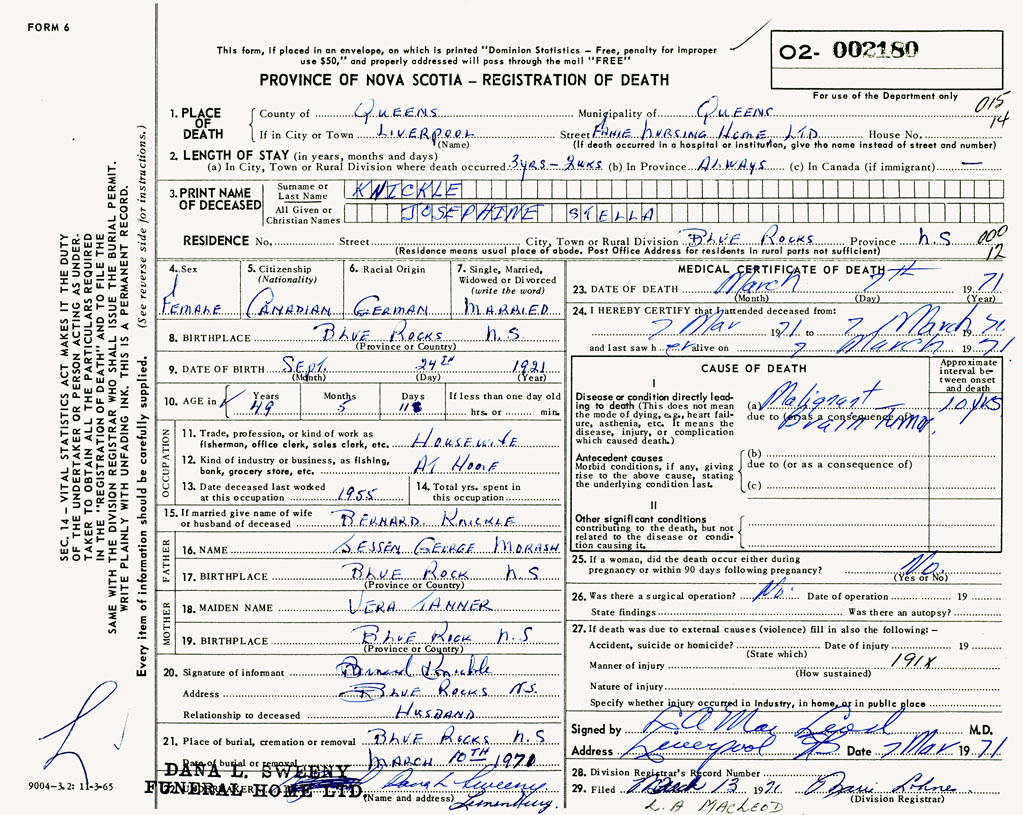 FORM 6
This form, if placed in an envelope, on which is printed "Dominion Statistics – Free, penalty for improper
use $50," and properly addressed will pass through the mail "FREE"
PROVINCE OF NOVA SCOTIA – REGISTRATION OF DEATH
O2- 002180
For use of the Department only
015
14
1. PLACE OF DEATH
County of QUEENS Municipality of QUEENS
If in City or Town LIVERPOOL Street NURSING HOME, LTD House No.
(Name) (If death occurred in a hospital or institution, give the name instead of street and number)
2. LENGTH OF STAY (in years, months and days)
(a) In City, Town or Rural Division where death occurred 3yrs – 2wks (b) In Province ALWAYS (c) In Canada (if immigrant) —
3. PRINT NAME OF DECEASED
Surname or Last Name KNICKLE
All Given or Christian Names JOSEPHINE STELLA
RESIDENCE No. Street City, Town or Rural Division BLUE ROCKS Province N.S
000
12
(Residence means usual place of abode. Post Office Address for residents in rural parts not sufficient)
4. Sex
FEMALE
5. Citizenship
(Nationality)
CANADIAN
6. Racial Origin
GERMAN
7. Single, Married,
Widowed or Divorced
(write the word)
MARRIED
8. BIRTHPLACE BLUE ROCKS N.S
(Province or Country)
9. DATE OF BIRTH SEPT. 24TH 1921
(Month) (Day) (Year)
10. AGE in Years Months Days If less than one day old
49 5 hrs. or min.
OCCUPATION
11. Trade, profession, or kind of work as
fishermen, office clerk, sales clerk, etc. HOUSEWIFE
12. Kind of industry or business, as fishing,
bank, grocery store, etc. AT HOME
13. Date deceased last worked
at this occupation 1955
14. Total yrs. spent in
this occupation
15. If married give name of wife
or husband of deceased BERNARD KNICKLE
FATHER
16. NAME GEORGE MORASH
17. BIRTHPLACE BLUE ROCK N.S
(Province or Country)
MOTHER
18. MAIDEN NAME VERA TANNER
19. BIRTHPLACE BLUE ROCK N.S
(Province or Country)
20. Signature of informant Bernard Knickle
Address BLUE ROCKS N.S.
Relationship to deceased HUSBAND
21. Place of burial, cremation or removal BLUE ROCKS N.S
Date of burial or removal MARCH 10TH 1971
DANA L. SWEENY
FUNERAL HOME LTD.
22. UNDERTAKER Dana L Sweeny
(Name and address) Lunenburg.
MEDICAL CERTIFICATE OF DEATH
23. DATE OF DEATH March 7th 1971
(Month) (Day) (Year)
24. I HEREBY CERTIFY that I attended deceased from:
7 Mar 1971 to 7 March 1971
and last saw her alive on 7 March 1971
CAUSE OF DEATH
Approximate
interval be-
tween onset
and death
I
Disease or condition directly lead-
ing to death (This does not mean
the mode of dying, e.g., heart fail-
ure, asthenia, etc. It means the
disease, injury, or complication
which caused death.)
(a) Malignant 10 yrs
due to (or as a consequence of)
Brain Tumor
Antecedent causes
Morbid conditions, if any, giving
rise to the above cause, stating
the underlying condition last.
(b)
due to (or as a consequence of)
(c)
II
Other significant conditions
contributing to the death, but not
related to the disease or condi-
tion causing it.
25. If a woman, did the death occur either during
pregnancy or within 90 days following pregnancy? No.
(Yes or No)
26. Was there a surgical operation? No. Date of operation 19
State findings Was there an autopsy?
27. If death was due to external causes (violence) fill in also the following: –
Accident, suicide or homicide? Date of injury 19
(State which)
Manner of injury 191X
(How sustained)
Nature of injury
Specify whether injury occurred in industry, in home, or in public place
Signed by L A MacLeod M.D.
Address Liverpool NS Date 7 Mar 1971
28. Division Registrar's Record Number
29. Filed March 13 1971
(Division Registrar)
L. A MACLEOD
SEC. 14 – VITAL STATISTICS ACT MAKES IT THE DUTY
OF THE UNDERTAKER OR PERSON ACTING AS UNDER-
TAKER TO OBTAIN ALL THE PARTICULARS REQUIRED
IN THE "REGISTRATION OF DEATH" AND TO FILE THE
SAME WITH THE DIVISION REGISTRAR WHO SHALL ISSUE THE BURIAL PERMIT.
WRITE PLAINLY WITH UNFADING INK. THIS IS A PERMANENT RECORD.
Every item of information should be carefully supplied. (See reverse side for instructions.)
9004–3.2: 11-3-65